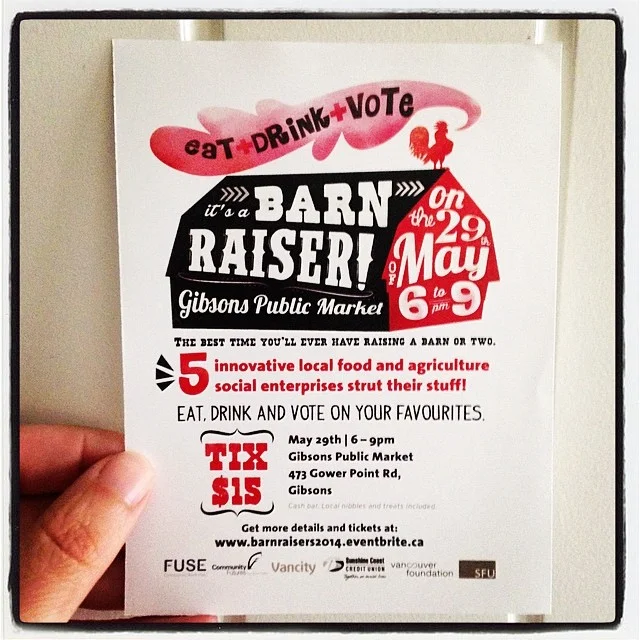 eat+DRiNK+VOTE
it's a BARN
RAISER!
Gibsons Public Market
on
the 29th
OF May
6 to 9
pm
THE BEST TIME YOU'LL EVER HAVE RAISING A BARN OR TWO.
5 innovative local food and agriculture
social enterprises strut their stuff!
EAT, DRINK AND VOTE ON YOUR FAVOURITES.
TIX
$15
May 29th | 6 – 9pm
Gibsons Public Market
473 Gower Point Rd,
Gibsons
Cash bar. Local nibbles and treats included.
Get more details and tickets at:
www.barnraisers2014.eventbrite.ca
FUSE
Community
Futures
Vancity
Sunshine Coast
CREDIT UNION
vancouver
foundation
SFU